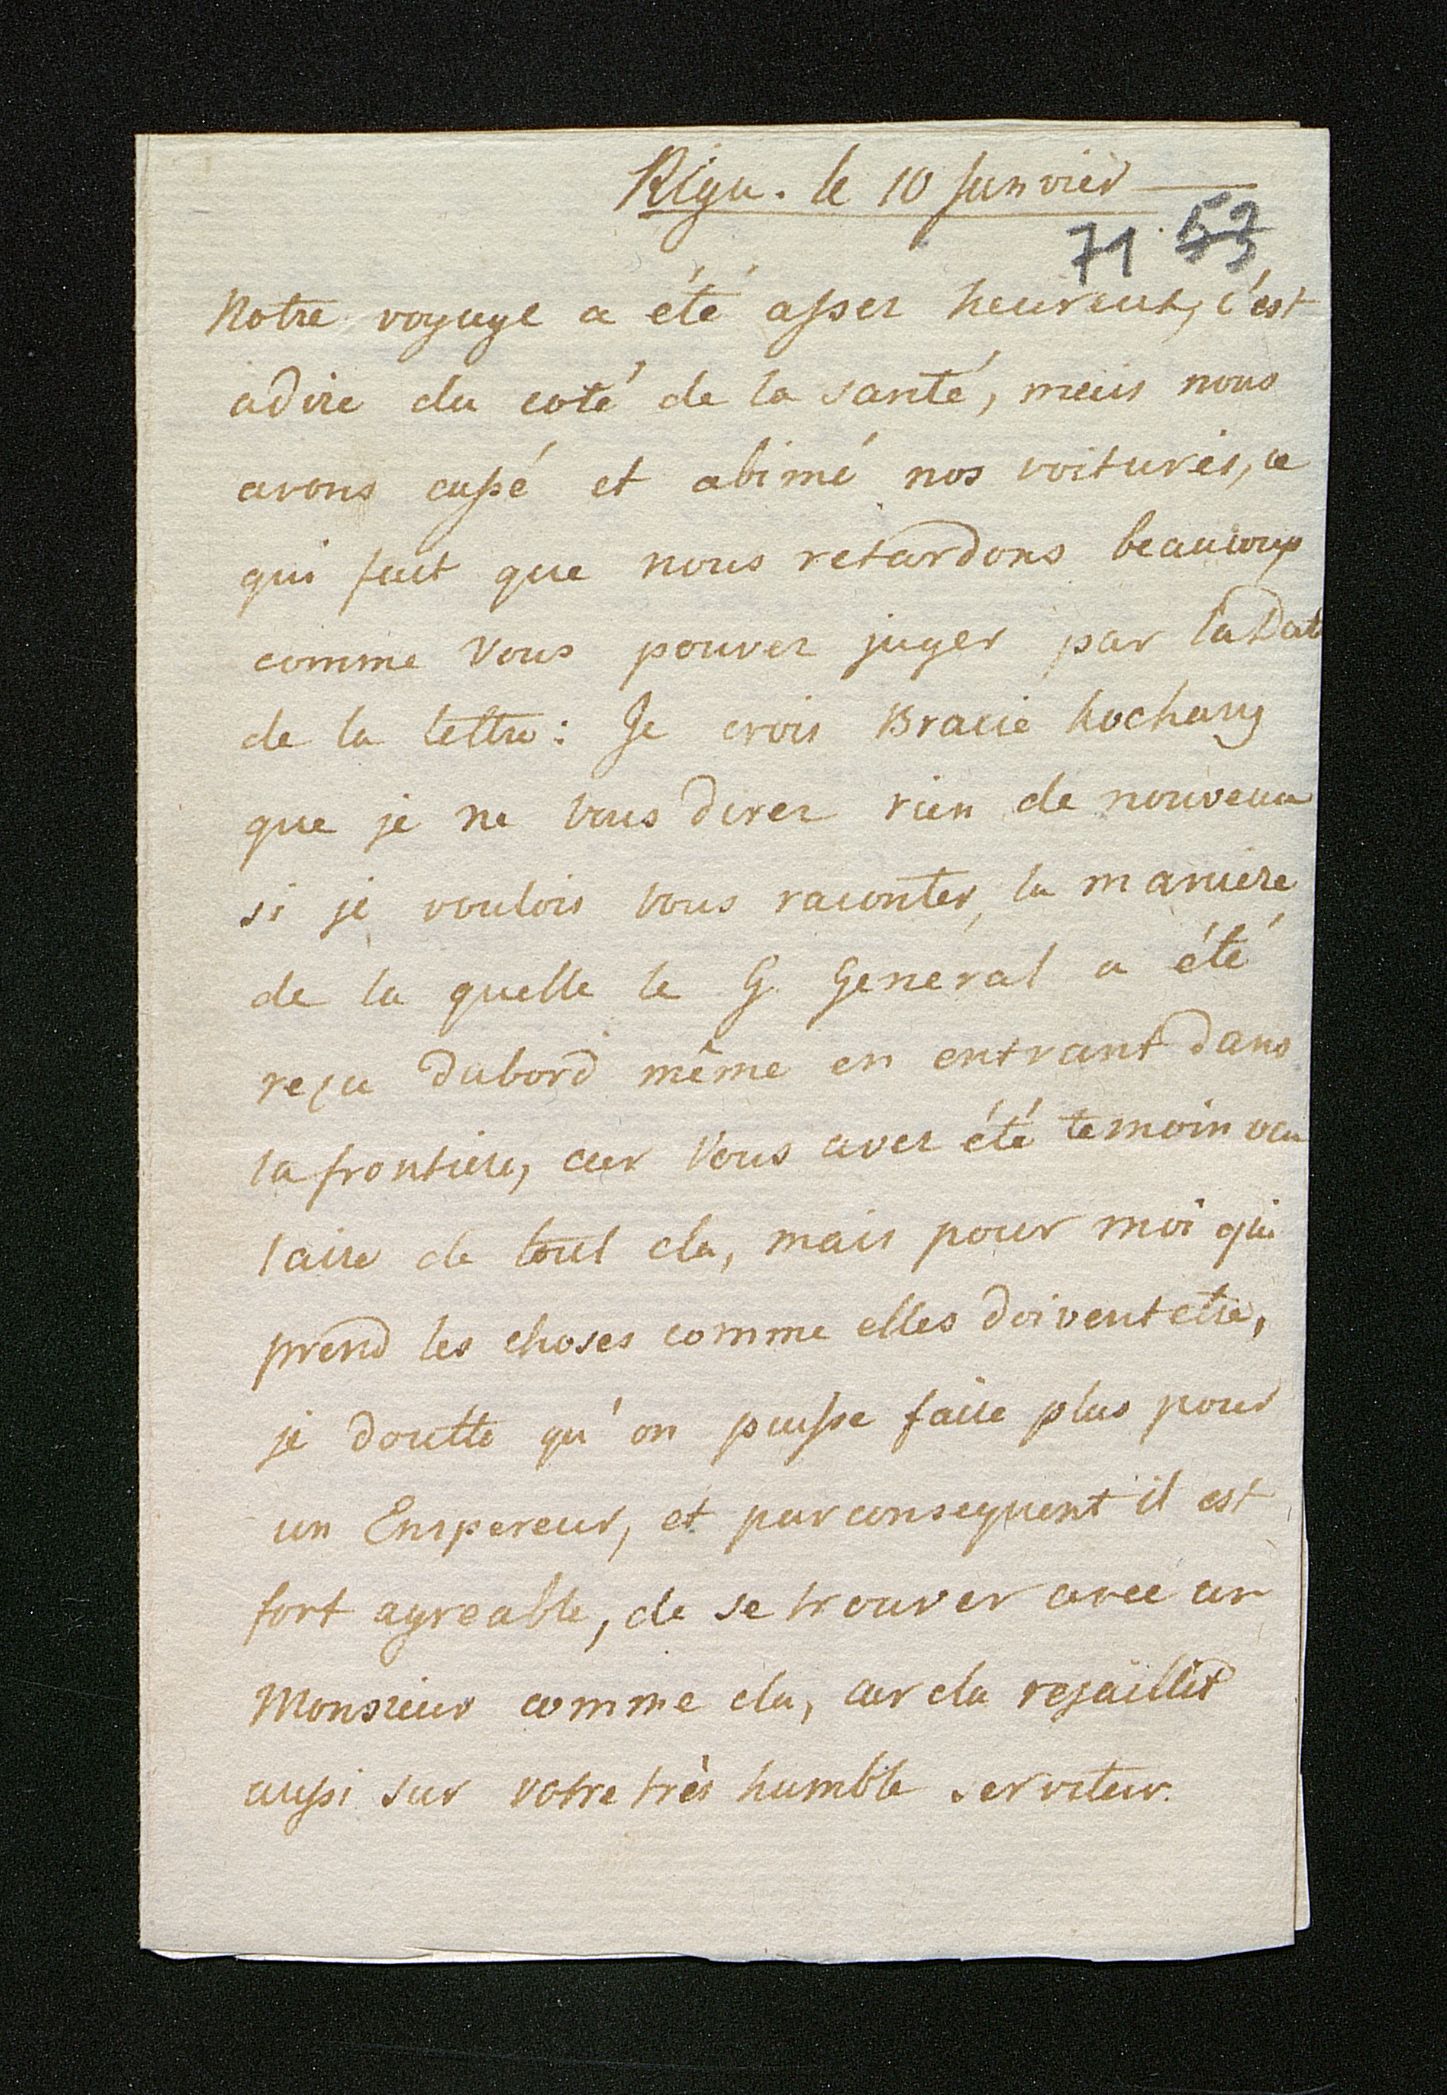 Riga. le 10 Janvier
71 53
Notre voyage a été assez heureux, c'est
adire du coté de la santé, mais nous
avons cassé et abimé nos voitures, ce
qui fait que nous retardons beaucoup
comme vous pouvez juger par la Dat
de la lettre: Je crois Bracie kochany
que je ne vous direz rien de nouveau
si je voulois vous raconter la maniere
de la quelle le G General a été
reçu dabord même en entrant dans
la frontiere, car vous avez été temoin ocu
laire de tout cla, mais pour moi qui
prend les choses comme elles doivent etre,
je doutte qu'on puisse faire plus pour
un Empereur, et parconsequent il est
fort agreable, de se trouver avec un
Monsieur comme cla, car cla rejaillit
aussi sur votre très humble serviteur.